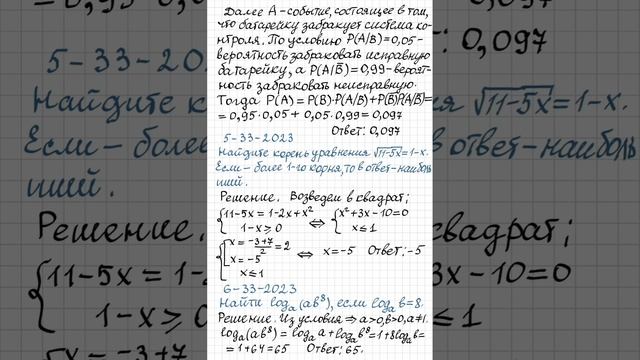 Далее А-событие, состоящее в том,
что батарейку забракует система ко-
нтроля. По условию P(A/B)=0,05-
вероятность забраковать исправную
батарейку, а P(A/B̅)=0,99-вероят-
ность забраковать неисправную.
Тогда P(A)=P(B)·P(A/B)+P(B̅)P(A/B̅)=
=0,95·0,05+0,05·0,99=0,097
Ответ: 0,097
5-33-2023
Найдите корень уравнения √11-5x=1-x.
Если-более 1-го корня, то в ответ-наиболь
ший.
Решение. Возведем в квадрат;
{11-5x=1-2x+x² ⇔ {x²+3x-10=0
1-x≥0 x≤1
{[x=-3+7/2=2 ⇔ x=-5 Ответ:-5
x=-5
x≤1
6-33-2023
Найти logₐ(ab⁸), если logₐb=8.
Решение. Из условия ⇒ a>0,b>0,a≠1.
logₐ(ab⁸)=logₐa+logₐb⁸=1+8logₐb=
=1+64=65 Ответ: 65.